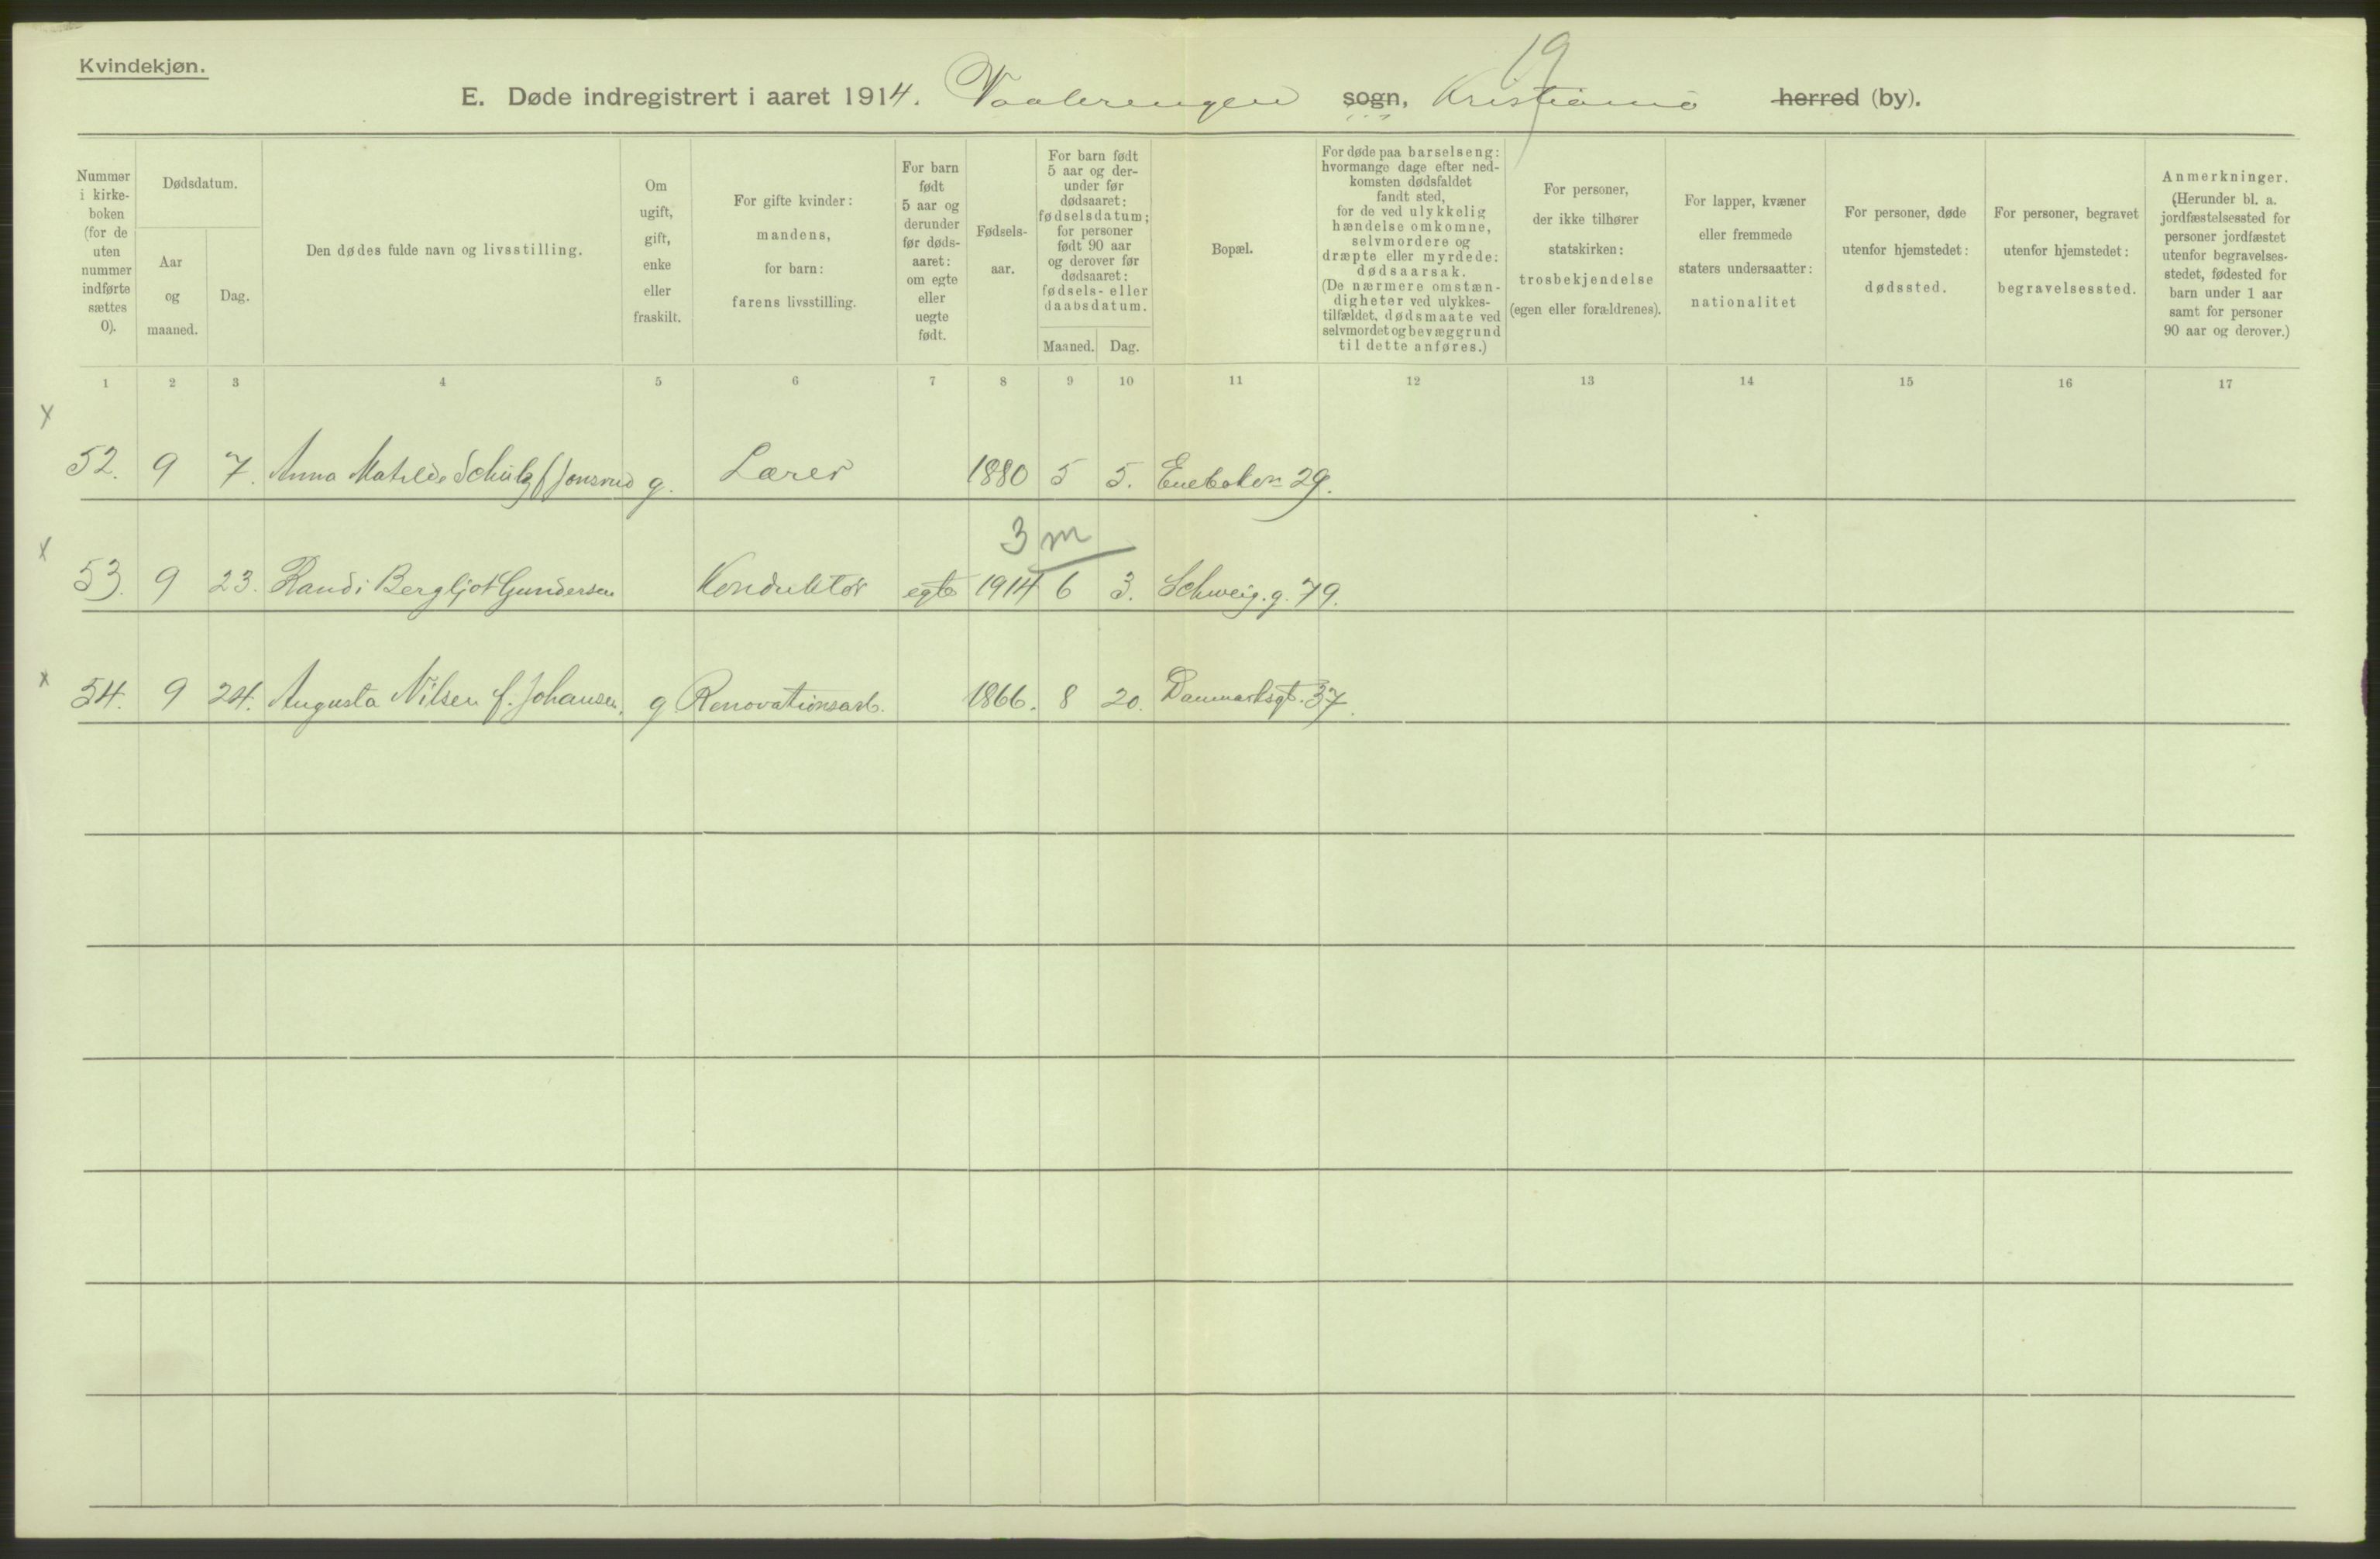 Kvindekjøn.
19
E. Døde indregistrert i aaret 1914. Vaalerengen sogn, Kristiania herred (by).
Nummer i kirke-boken (for de uten nummer indførte sættes 0).
Dødsdatum.
Aar og maaned.
Dag.
Den dødes fulde navn og livsstilling.
Om ugift, gift, enke eller fraskilt.
For gifte kvinder: mandens, for barn: farens livsstilling.
For barn født 5 aar og derunder før døds-aaret: om egte eller uegte født.
Fødsels-aar.
For barn født 5 aar og der-under før dødsaaret: fødselsdatum; for personer født 90 aar og derover før dødsaaret: fødsels- eller daabsdatum.
Maaned. Dag.
Bopæl.
For døde paa barselseng: hvormange dage efter ned-komsten dødsfaldet fandt sted, for de ved ulykkelig hændelse omkomne, selvmordere og dræpte eller myrdede: dødsaarsak. (De nærmere omstæn-digheter ved ulykkes-tilfældet, dødsmaate ved selvmordet og bevæggrund til dette anføres.)
For personer, der ikke tilhører statskirken: trosbekjendelse (egen eller forældrenes).
For lapper, kvæner eller fremmede staters undersaatter: nationalitet
For personer, døde utenfor hjemstedet: dødssted.
For personer, begravet utenfor hjemstedet: begravelsessted.
Anmerkninger. (Herunder bl. a. jordfæstelsessted for personer jordfæstet utenfor begravelses-stedet, fødested for barn under 1 aar samt for personer 90 aar og derover.)
1 2 3 4 5 6 7 8 9 10 11 12 13 14 15 16 17
x
52. 9 7. Anna Matilde Schulz f Jonsrud g. Lærer 1880 5 5. 29.
3 m
x
53. 9 23. Randi Bergljot Gundersen Konduktør egte 1914 6 3. Schweig. g. 79.
x
54. 9 24. Augusta Nilsen f. Johansen. g Renovationsarb. 1866. 8 20. Danmarksgt. 37.